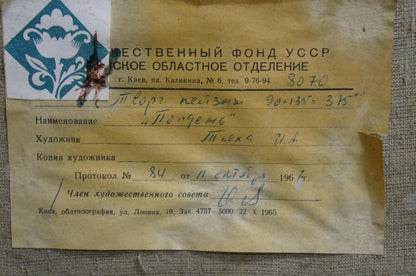 ЖЕСТВЕННЫЙ ФОНД УССР
СКОЕ ОБЛАСТНОЕ ОТДЕЛЕНИЕ
г. Киев, пл. Калинина, № 6, тел. 9-76-94 8070
Творч пейзаж 90×135 = 375
Наименование „Полдень"
Художник И. А.
Копия художника
Протокол № 84 от 11 октября 196 г.
Член художественного совета
Киев, облтипография, ул. Ленина, 19, Зак. 4757—5000. 22 X 1965